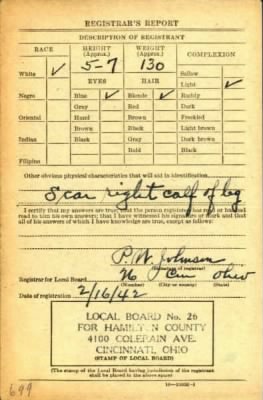 REGISTRAR'S REPORT
DESCRIPTION OF REGISTRANT
RACE HEIGHT (Approx.) WEIGHT (Approx.) COMPLEXION
White ✓ 5-7 130 Sallow
EYES HAIR Light ✓
Negro Blue ✓ Blonde ✓ Ruddy
Gray Red Dark
Oriental Hazel Brown Freckled
Brown Black Light brown
Indian Black Gray Dark brown
Bald Black
Filipino
Other obvious physical characteristics that will aid in identification
Scar right calf of leg
I certify that my answers are true; that the person registered has read or has had
read to him his own answers; that I have witnessed his signature or mark and that
all of his answers of which I have knowledge are true, except as follows:
P. W. Johnson
(Signature of registrar)
Registrar for Local Board 26 Cin Ohio
(Number) (City or county) (State)
Date of registration 2/16/42
LOCAL BOARD No. 26
FOR HAMILTON COUNTY
4100 COLERAIN AVE.
CINCINNATI, OHIO
(STAMP OF LOCAL BOARD)
(The stamp of the Local Board having jurisdiction of the registrant
shall be placed in the above space)
699